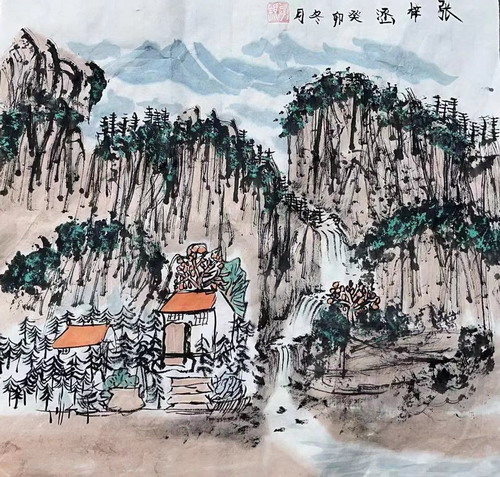 张梓涵癸卯冬月